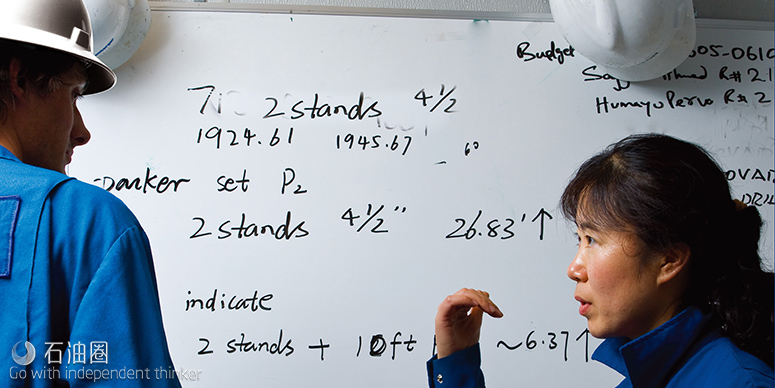 Budget 505-0610
R# 21
Humayu Pervo R# 2
7" 2 stands 4 1/2
1924.61 1945.67
- 6°
set P2
2 stands 4 1/2" 26.83' ↑
indicate
2 stands + 10ft ~6.37 ↑
石油圈
Go with independent thinker